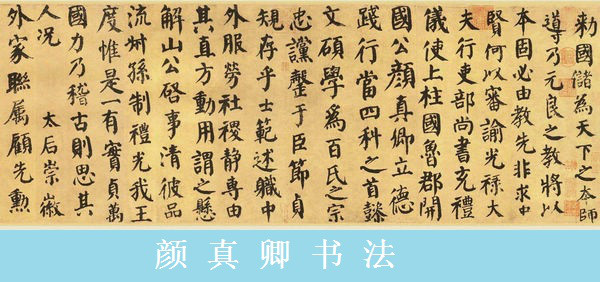 勅國儲為天下之本師
導乃元良之教將以
本固必由教先非求中
賢何以審諭光祿大
夫行吏部尚書充禮
儀使上柱國魯郡開
國公顏真卿立德
踐行當四科之首懿
文碩學為百氏之宗
忠讜罄于臣節貞
規存乎士範述職中
外服勞社稷靜專由
其直方動用謂之懸
解山公啓事清彼品
流叔孫制禮光我王
度惟是一有實貞萬
國力乃稽古則思其
人况 太后崇徽
外家聯属顧先勳
颜真卿书法